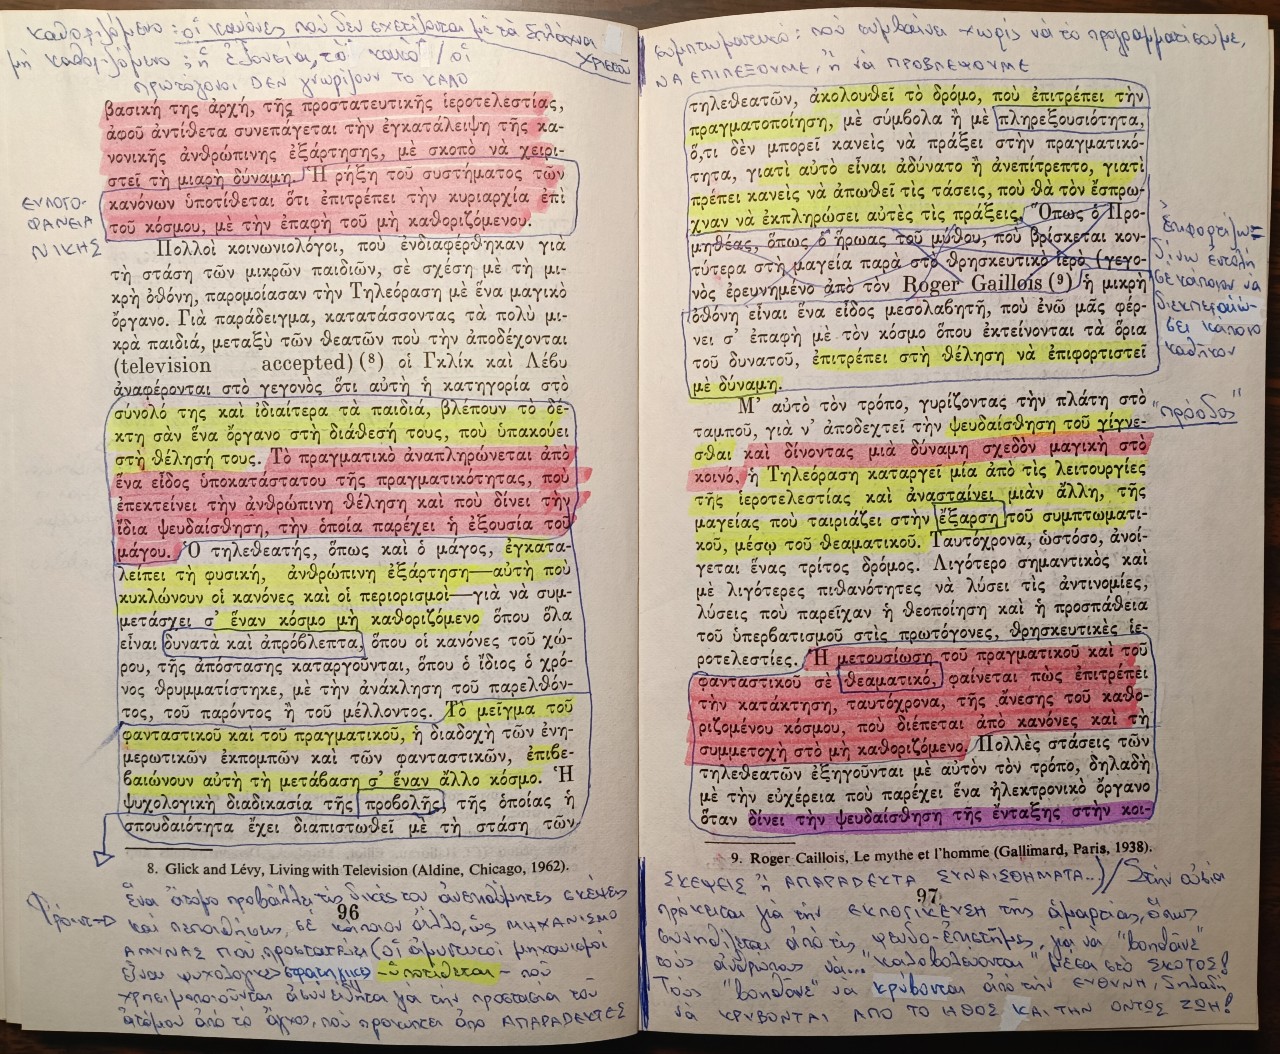 καθοριζόμενο: οἱ κανόνες ποὺ δεν σχετίζονται μὲ τὰ σπλάχνα
ΧΡΙΣΤΟΥ
μὴ καθοριζόμενο: ἡ ἐξουσία, τὸ "κακό" / οἱ
πρωτόγονοι ΔΕΝ γνωρίζουν ΤΟ ΚΑΛΟ
βασική της ἀρχή, τῆς προστατευτικῆς ἱεροτελεστίας,
ἀφοῦ ἀντίθετα συνεπάγεται τὴν ἐγκατάλειψη τῆς κα-
νονικῆς ἀνθρώπινης ἐξάρτησης, μὲ σκοπὸ νὰ χειρι-
στεῖ τὴ μιαρὴ δύναμη. Ἡ ρήξη τοῦ συστήματος τῶν
κανόνων ὑποτίθεται ὅτι ἐπιτρέπει τὴν κυριαρχία ἐπὶ
τοῦ κόσμου, μὲ τὴν ἐπαφὴ τοῦ μὴ καθοριζόμενου.
ΕΥΛΟΓΟ-
ΦΑΝΕΙΑ
ΝΙΚΗΣ
Πολλοὶ κοινωνιολόγοι, ποὺ ἐνδιαφέρθηκαν γιὰ
τὴ στάση τῶν μικρῶν παιδιῶν, σὲ σχέση μὲ τὴ μι-
κρὴ ὀθόνη, παρομοίασαν τὴν Τηλεόραση μὲ ἕνα μαγικὸ
ὄργανο. Γιὰ παράδειγμα, κατατάσσοντας τὰ πολὺ μι-
κρὰ παιδιά, μεταξὺ τῶν θεατῶν ποὺ τὴν ἀποδέχονται
(television accepted) (⁸) οἱ Γκλὶκ καὶ Λέβυ
ἀναφέρονται στὸ γεγονὸς ὅτι αὐτὴ ἡ κατηγορία στὸ
σύνολό της καὶ ἰδιαίτερα τὰ παιδιά, βλέπουν τὸ δέ-
κτη σὰν ἕνα ὄργανο στὴ διάθεσή τους, ποὺ ὑπακούει
στὴ θέλησή τους. Τὸ πραγματικὸ ἀναπληρώνεται ἀπὸ
ἕνα εἶδος ὑποκατάστατου τῆς πραγματικότητας, ποὺ
ἐπεκτείνει τὴν ἀνθρώπινη θέληση καὶ ποὺ δίνει τὴν
ἴδια ψευδαίσθηση, τὴν ὁποία παρέχει ἡ ἐξουσία τοῦ
μάγου. Ὁ τηλεθεατής, ὅπως καὶ ὁ μάγος, ἐγκατα-
λείπει τὴ φυσική, ἀνθρώπινη ἐξάρτηση—αὐτὴ ποὺ
κυκλώνουν οἱ κανόνες καὶ οἱ περιορισμοὶ—γιὰ νὰ συμ-
μετάσχει σ' ἕναν κόσμο μὴ καθοριζόμενο ὅπου ὅλα
εἶναι δυνατὰ καὶ ἀπρόβλεπτα, ὅπου οἱ κανόνες τοῦ χώ-
ρου, τῆς ἀπόστασης καταργοῦνται, ὅπου ὁ ἴδιος ὁ χρό-
νος θρυμματίστηκε, μὲ τὴν ἀνάκληση τοῦ παρελθόν-
τος, τοῦ παρόντος ἢ τοῦ μέλλοντος. Τὸ μεῖγμα τοῦ
φανταστικοῦ καὶ τοῦ πραγματικοῦ, ἡ διαδοχὴ τῶν ἐνη-
μερωτικῶν ἐκπομπῶν καὶ τῶν φανταστικῶν, ἐπιβε-
βαιώνουν αὐτὴ τὴ μετάβαση σ' ἕναν ἄλλο κόσμο. Ἡ
ψυχολογικὴ διαδικασία τῆς προβολῆς, τῆς ὁποίας ἡ
σπουδαιότητα ἔχει διαπιστωθεῖ μὲ τὴ στάση τῶν
8. Glick and Lévy, Living with Television (Aldine, Chicago, 1962).
96
Φρόυντ→ ἕνα ἄτομο προβάλλει τὶς δικές του ἀνεπιθύμητες σκέψεις
καὶ πεποιθήσεις, σὲ κάποιον ἄλλο, ὡς ΜΗΧΑΝΙΣΜΟ
ΑΜΥΝΑΣ ΠΟΥ προστατεύει (οἱ ἀμυντικοὶ μηχανισμοὶ
εἶναι ψυχολογικές στρατηγικές -ὑποτίθεται- ποὺ
χρησιμοποιοῦνται ἀσυνείδητα γιὰ τὴν προστασία τοῦ
ἀτόμου ἀπὸ τὸ ἄγχος, ποὺ προκύπτει ἀπὸ ΑΠΑΡΑΔΕΚΤΕΣ
συμπτωματικό: ποὺ συμβαίνει χωρὶς νὰ τὸ προγραμματίσουμε,
ΝΑ ΕΠΙΛΕΞΟΥΜΕ, ἢ νὰ ΠΡΟΒΛΕΨΟΥΜΕ
τηλεθεατῶν, ἀκολουθεῖ τὸ δρόμο, ποὺ ἐπιτρέπει τὴν
πραγματοποίηση, μὲ σύμβολα ἢ μὲ πληρεξουσιότητα,
ὅ,τι δὲν μπορεῖ κανεὶς νὰ πράξει στὴν πραγματικό-
τητα, γιατὶ αὐτὸ εἶναι ἀδύνατο ἢ ἀνεπίτρεπτο, γιατὶ
πρέπει κανεὶς νὰ ἀπωθεῖ τὶς τάσεις, ποὺ θὰ τὸν ἔσπρω-
χναν νὰ ἐκπληρώσει αὐτὲς τὶς πράξεις. Ὅπως ὁ Προ-
μηθέας, ὅπως ὁ ἥρωας τοῦ μύθου, ποὺ βρίσκεται κον-
τύτερα στὴ μαγεία παρὰ στὸ θρησκευτικὸ ἱερὸ (γεγο-
νὸς ἐρευνημένο ἀπὸ τὸν Roger Gaillois (⁹) ἡ μικρὴ
ὀθόνη εἶναι ἕνα εἶδος μεσολαβητῆ, ποὺ ἐνῶ μᾶς φέρ-
νει σ' ἐπαφὴ μὲ τὸν κόσμο ὅπου ἐκτείνονται τὰ ὅρια
τοῦ δυνατοῦ, ἐπιτρέπει στὴ θέληση νὰ ἐπιφορτιστεῖ
μὲ δύναμη.
ἐπιφορτίζω=
δίνω ἐντολὴ
σὲ κάποιον νὰ
διεκπεραιώ-
σει κάποιο
καθῆκον
Μ' αὐτὸ τὸν τρόπο, γυρίζοντας τὴν πλάτη στὸ
ταμπού, γιὰ ν' ἀποδεχτεῖ τὴν ψευδαίσθηση τοῦ γίγνε-
σθαι καὶ δίνοντας μιὰ δύναμη σχεδὸν μαγικὴ στὸ
κοινό, ἡ Τηλεόραση καταργεῖ μία ἀπὸ τὶς λειτουργίες
τῆς ἱεροτελεστίας καὶ ἀνασταίνει μιὰν ἄλλη, τῆς
μαγείας ποὺ ταιριάζει στὴν ἔξαρση τοῦ συμπτωματι-
κοῦ, μέσῳ τοῦ θεαματικοῦ. Ταυτόχρονα, ὡστόσο, ἀνοί-
γεται ἕνας τρίτος δρόμος. Λιγότερο σημαντικὸς καὶ
μὲ λιγότερες πιθανότητες νὰ λύσει τὶς ἀντινομίες,
λύσεις ποὺ παρεῖχαν ἡ θεοποίηση καὶ ἡ προσπάθεια
τοῦ ὑπερβατισμοῦ στὶς πρωτόγονες, θρησκευτικὲς ἱε-
ροτελεστίες. Ἡ μετουσίωση τοῦ πραγματικοῦ καὶ τοῦ
φανταστικοῦ σὲ θεαματικό, φαίνεται πὼς ἐπιτρέπει
τὴν κατάκτηση, ταυτόχρονα, τῆς ἄνεσης τοῦ καθο-
ριζομένου κόσμου, ποὺ διέπεται ἀπὸ κανόνες καὶ τὴ
συμμετοχὴ στὸ μὴ καθοριζόμενο. Πολλὲς στάσεις τῶν
τηλεθεατῶν ἐξηγοῦνται μὲ αὐτὸν τὸν τρόπο, δηλαδὴ
μὲ τὴν εὐχέρεια ποὺ παρέχει ἕνα ἠλεκτρονικὸ ὄργανο
ὅταν δίνει τὴν ψευδαίσθηση τῆς ἔνταξης στὴν κοι-
"πρόοδος"
9. Roger Caillois, Le mythe et l'homme (Gallimard, Paris, 1938).
97
ΣΚΕΨΕΙΣ ἢ ΑΠΑΡΑΔΕΚΤΑ ΣΥΝΑΙΣΘΗΜΑΤΑ...) / Στὴν οὐσία
πρόκειται γιὰ τὴν ΕΚΛΟΓΙΚΕΥΣΗ τῆς ἁμαρτίας, ὅπως
συνηθίζεται ἀπὸ τὶς ψευδο-ἐπιστῆμες, γιὰ νὰ "βοηθᾶνε"
τοὺς ἀνθρώπους νὰ... "καλοβολεύονται" μέσα στὸ ΣΚΟΤΟΣ!
Τοὺς "βοηθᾶνε" νὰ κρύβονται ἀπὸ τὴν ΕΥΘΥΝΗ, δηλαδὴ
νὰ ΚΡΥΒΟΝΤΑΙ ΑΠΟ ΤΟ ΗΘΟΣ ΚΑΙ ΤΗΝ ΟΝΤΩΣ ΖΩΗ!